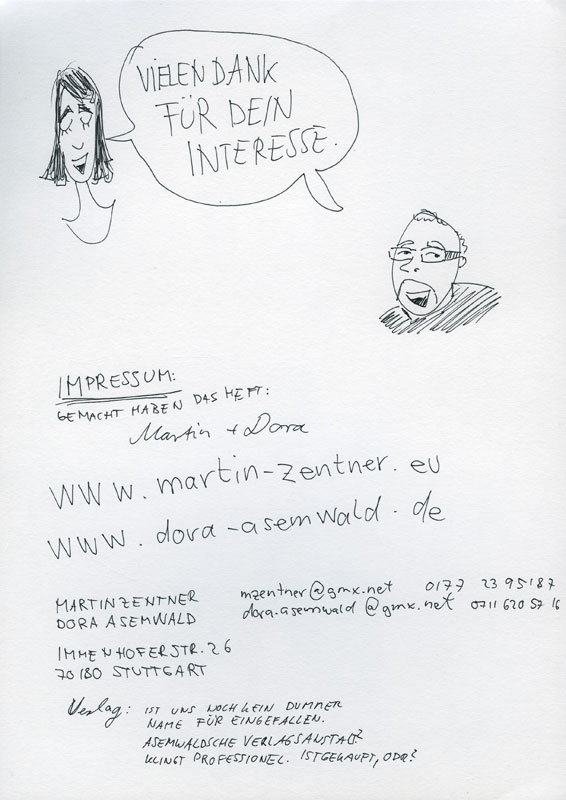 VIELEN DANK
FÜR DEIN
INTERESSE.
IMPRESSUM:
GEMACHT HABEN DAS HEFT:
Martin + Dora
www.martin-zentner.eu
www.dora-asemwald.de
MARTIN ZENTNER mzentner@gmx.net 0177 2395187
DORA ASEMWALD dora.asemwald@gmx.net 0711 620 57 16
IMMENHOFERSTR. 26
70180 STUTTGART
Verlag: IST UNS NOCH KEIN DUMMER
NAME FÜR EINGEFALLEN.
ASEMWALDSCHE VERLAGSANSTALT?
KLINGT PROFESSIONEL. IST GEKAUFT, ODR?